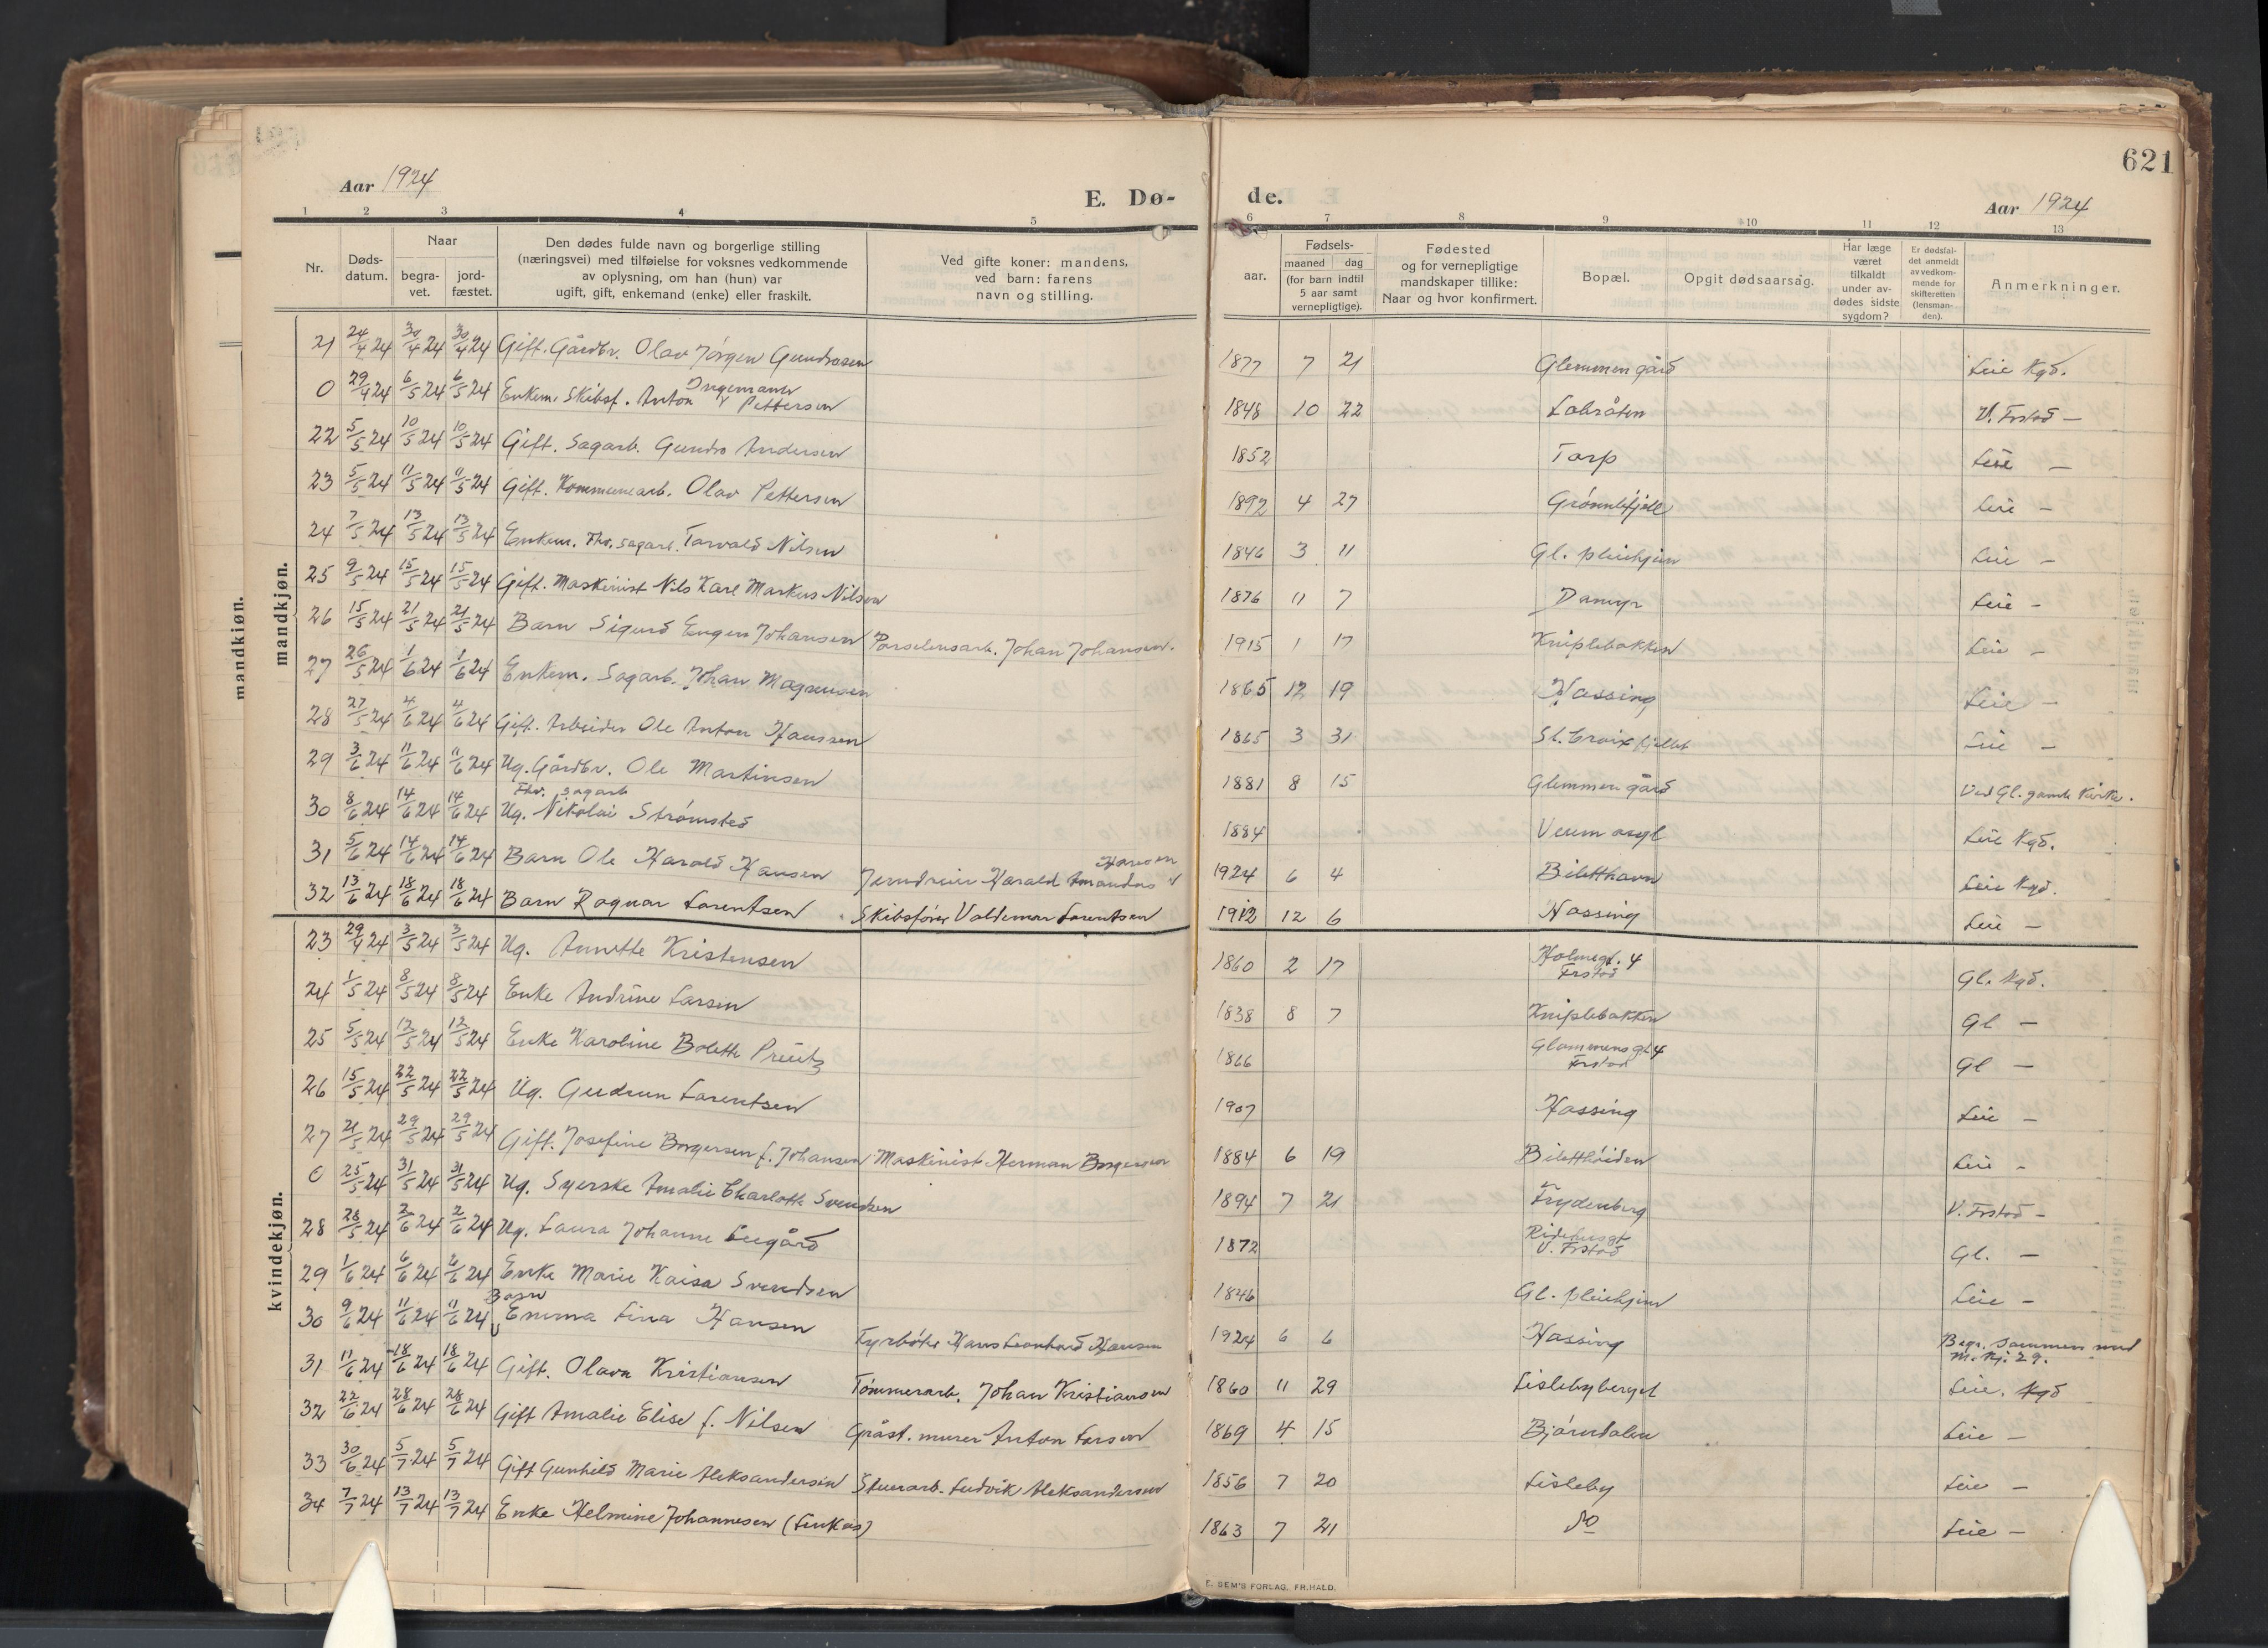 621
Aar 1924
E. Dø-
de.
Aar 1924
1 2 3 4 5 6 7 8 9 10 11 12 13
Nr.
Døds-
datum.
Naar
begra-
vet.
jord-
fæstet.
Den dødes fulde navn og borgerlige stilling
(næringsvei) med tilføielse for voksnes vedkommende
av oplysning, om han (hun) var
ugift, gift, enkemand (enke) eller fraskilt.
Ved gifte koner: mandens,
ved barn: farens
navn og stilling.
aar.
Fødsels-
maaned dag
(for barn indtil
5 aar samt
vernepligtige).
Fødested
og for vernepligtige
mandskaper tillike:
Naar og hvor konfirmert.
Bopæl.
Opgit dødsaarsag.
Har læge
været
tilkaldt
under av-
dødes sidste
sygdom?
Er dødsfal-
det anmeldt
av vedkom-
mende for
skifteretten
(lensman-
den).
Anmerkninger.
mandkjøn.
mandkjøn.
21 24/4 24 30/4 24 30/4 24 Gift. Gårdbr. Olav Jørgen Gundrosen 1877 7 21 Glemmen gård Leie Kgd.
0 29/4 24 6/5 24 6/5 24 Enkem. Skibsf. Anton Ingemann Pettersen 1848 10 22 Labråten V. Frstad —
22 5/5 24 10/5 24 10/5 24 Gift. Sagarb. Gundro Andersen 1852 Torp Leie —
23 5/5 24 11/5 24 11/5 24 Gift. Kommunearb. Olav Pettersen 1892 4 27 Grønnlifjell Leie —
24 7/5 24 13/5 24 13/5 24 Enkem. Fhv. sagarb. Torvald Nilsen 1846 3 11 Gl. pleiehjem Leie —
25 9/5 24 15/5 24 15/5 24 Gift. Maskinist Nils Karl Markus Nilsen 1876 11 7 Damyr Leie —
26 15/5 24 21/5 24 21/5 24 Barn Sigurd Eugen Johansen Porselensarb. Johan Johansen. 1915 1 17 Kniplebakken Leie —
27 26/5 24 1/6 24 1/6 24 Enkem. Sagarb. Johan Magnussen 1865 12 19 Hassing Leie —
28 27/5 24 4/6 24 4/6 24 Gift. Arbeider Ole Anton Hanssen 1865 3 31 St. Croix fjellet Leie —
29 3/6 24 11/6 24 11/6 24 Ug. Gårdbr. Ole Martinsen 1881 8 15 Glemmen gård Ved Gl. gamle Kirke.
30 8/6 24 14/6 24 14/6 24 Ug. Fhv. sagarb Nikolai Strømsted 1884 Veum asyl Leie Kgd.
31 5/6 24 14/6 24 14/6 24 Barn Ole Harald Hansen Jerndreier Harald Amandus Hansen 1924 6 4 Biletthavn Leie Kgd.
32 13/6 24 18/6 24 18/6 24 Barn Ragnar Lorentsen Skibsfører Valdemar Lorentsen 1912 12 6 Hassing Leie —
kvindekjøn.
23 29/4 24 3/5 24 3/5 24 Ug. Annette Kristensen 1860 2 17 Holmegt. 4 Frstad Gl. Kgd.
24 1/5 24 8/5 24 8/5 24 Enke Andrine Larsen 1838 8 7 Kniplebakken Gl —
25 5/5 24 12/5 24 12/5 24 Enke Karoline Bolette Preutz 1866 Glommens gt 4 Frstad Gl —
26 15/5 24 22/5 24 22/5 24 Ug. Gudrun Lorentsen 1907 Hassing Leie —
27 21/5 24 29/5 24 29/5 24 Gift. Josefine Borgersen f. Johansen Maskinist Herman Borgersen 1884 6 19 Biletthøiden Leie —
0 25/5 24 31/5 24 31/5 24 Ug. Syerske Amalie Charlotte Svendsen 1894 7 21 Frydenberg V. Frstad —
28 28/5 24 2/6 24 2/6 24 Ug. Laura Johanne Leegård 1872 Ridehusgt V. Frstad Gl. —
29 1/6 24 6/6 24 6/6 24 Enke Marie Kaisa Svendsen 1846 Gl. pleiehjem Leie —
30 9/6 24 11/6 24 11/6 24 Barn Emma Lina Hansen Fyrbøter Hans Leonhard Hansen 1924 6 6 Hassing Begr. sammen med M. Kj. 29.
31 11/6 24 18/6 24 18/6 24 Gift. Olava Kristiansen Tømmerarb. Johan Kristiansen 1860 11 29 Lislebyberget Leie. Kgd
32 22/6 24 28/6 24 28/6 24 Gift Amalie Elise f. Nilsen Gråst. murer Anton Larsen 1869 4 15 Bjørndalen Leie —
33 30/6 24 5/7 24 5/7 24 Gift Gunhild Marie Aleksandersen Stuerarb. Ludvik Aleksandersen 1856 7 20 Lisleby Leie —
34 7/7 24 13/7 24 13/7 24 Enke Helmine Johannesen (Linkås) 1863 7 21 do Leie —
E. SEM'S FORLAG, FR.HALD.